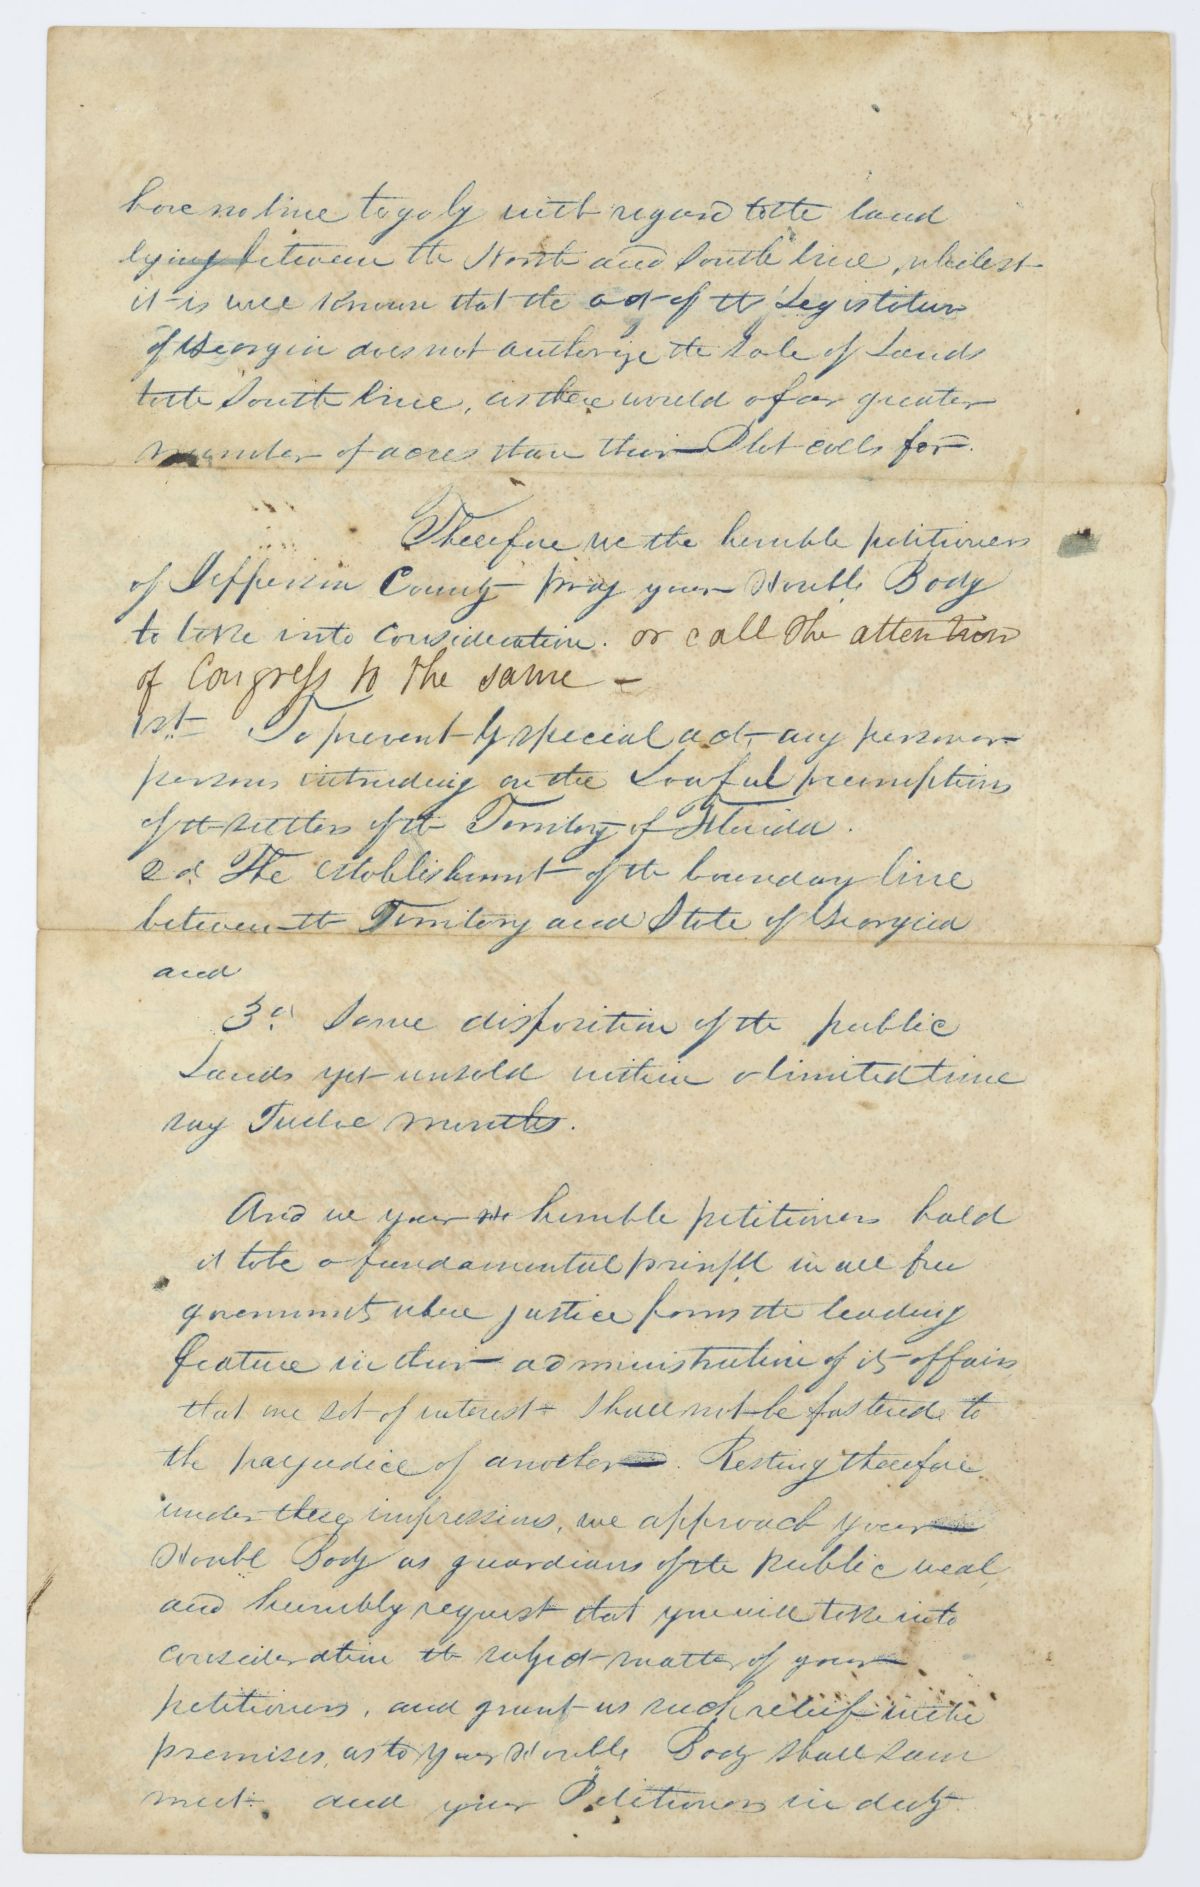 have no line to go by with regard to the land
lying between the North and South line, whilest
it is well known that the act of the Legislature
of Georgia does not authorize the sale of Lands
to the South line, as there would a far greater
number of acres than their Plot calls for.
Therefore we the humble petitioners
of Jefferson County pray your Honble Body
to take into consideration. or call the attention
of Congress to the same -
1st To prevent by special act, any person or
persons intruding on the Lawful preemptions
of the settlers of the Territory of Florida.
2d. The establishment of the boundary line
between the Territory and State of Georgia
and
3d. Some disposition of the public
Lands yet unsold within a limited time
say Twelve months.
And we your humble petitioners hold
it to be a fundamental in all free
governments where justice forms the leading
feature in their administration of its affairs
that one set of interest shall not be fostered to
the prejudice of another. Resting therefore
under these impressions, we approach your
Honbl Body as guardians of the public weal,
and humbly request that you will take into
consideration the subject matter of your
petitioners, and grant us such relief in the
premises, as to your Honble Body shall seem
meet. and your Petitioners in duty